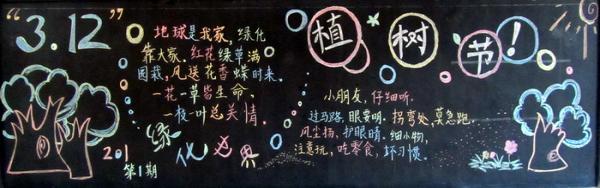 “3.12”
地球是我家，绿化
靠大家，红花绿草满
园栽，风送花香蝶时来，
一花一草皆生命，
一枝一叶总关情。
绿化世界
201
第1期
植树节！
小朋友，仔细听，
过马路，眼要明，拐弯处，莫急跑，
风尘扬，护眼睛，细小物，
注意玩，吃零食，坏习惯。